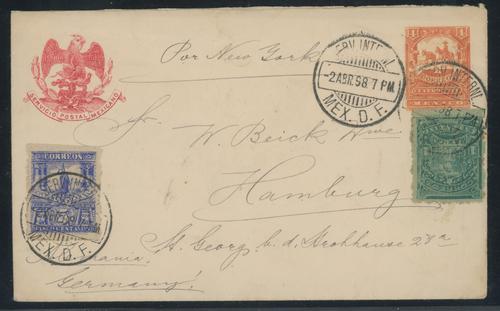 Por New York
SERVICIO POSTAL MEXICANO
SERV. INTERNL
-2 ABR. 98 7 PM
MEX. D. F.
W. Beick Wwe
Hamburg
CORREOS
SERV. IN
MEX. D. F.
St. Georg b. d. Strohhause 28a
Germany!